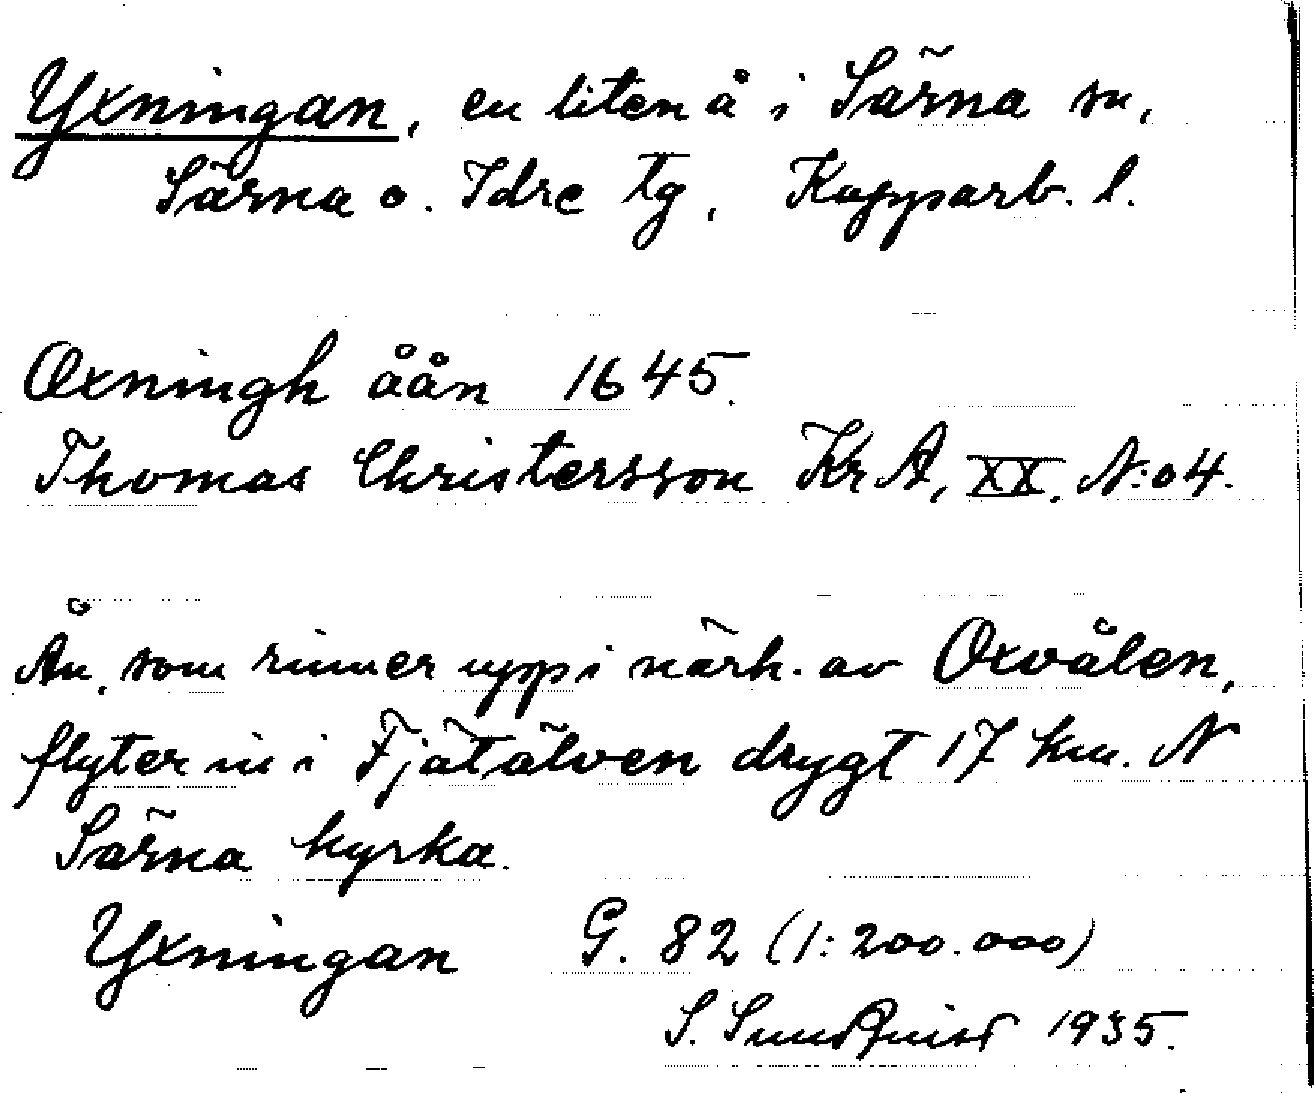 Yxningan, en liten å i Särna sn,
Särna o. Idre tg, Kopparb. l.
Oxningh åån 1645.
Thomas Christersson KrA, XX, N:o 4.
Ån, som rinner upp i närh. av Oxvålen,
flyter in i Fjätälven drygt 17 km. N
Särna kyrka.
Yxningan G. 82 (1:200.000)
S. Sundquist 1935.